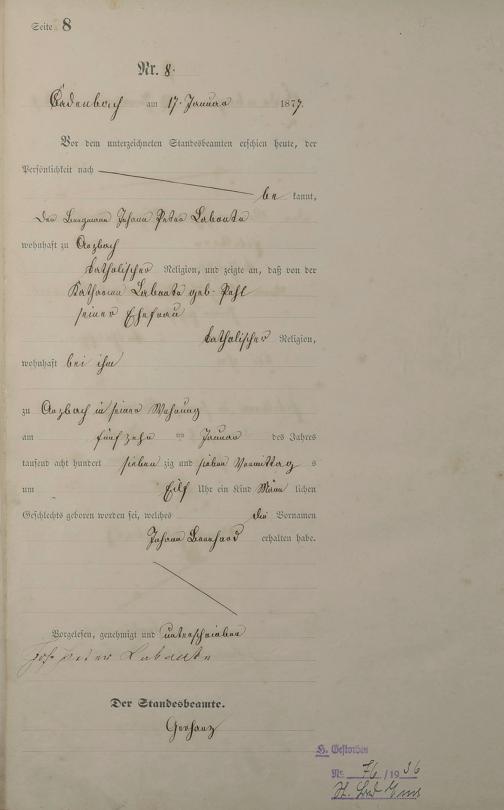 Seite 8
Nr. 8.
Cadenbach am 17. Januar 1877.
Vor dem unterzeichneten Standesbeamten erschien heute, der
Persönlichkeit nach
be kannt,
der Bergmann Johann Peter Labonte
wohnhaft zu Arzbach
katholischer Religion, und zeigte an, daß von der
Katharina Labonte geb. Pehl
seiner Ehefrau
katholischer Religion,
wohnhaft bei ihm
zu Arzbach in seiner Wohnung
am fünfzehn ten Januar des Jahres
tausend acht hundert sieben zig und sieben Vormittag s
um Eilf Uhr ein Kind Männ lichen
Geschlechts geboren worden sei, welches die Vornamen
Johann Bernhard erhalten habe.
Vorgelesen, genehmigt und unterschrieben
Joh Peter Labonte
Der Standesbeamte.
H. Gestorben
Nr. 76 / 1936
St. Bad Ems